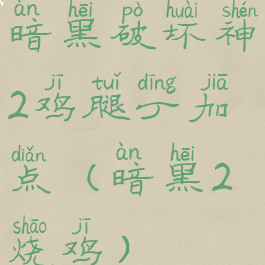 àn hēi pò huài shén
暗黑破坏神
jī tuǐ dīng jiā
2鸡腿丁加
diǎn àn hēi
点(暗黑2
shāo jī
烧鸡)